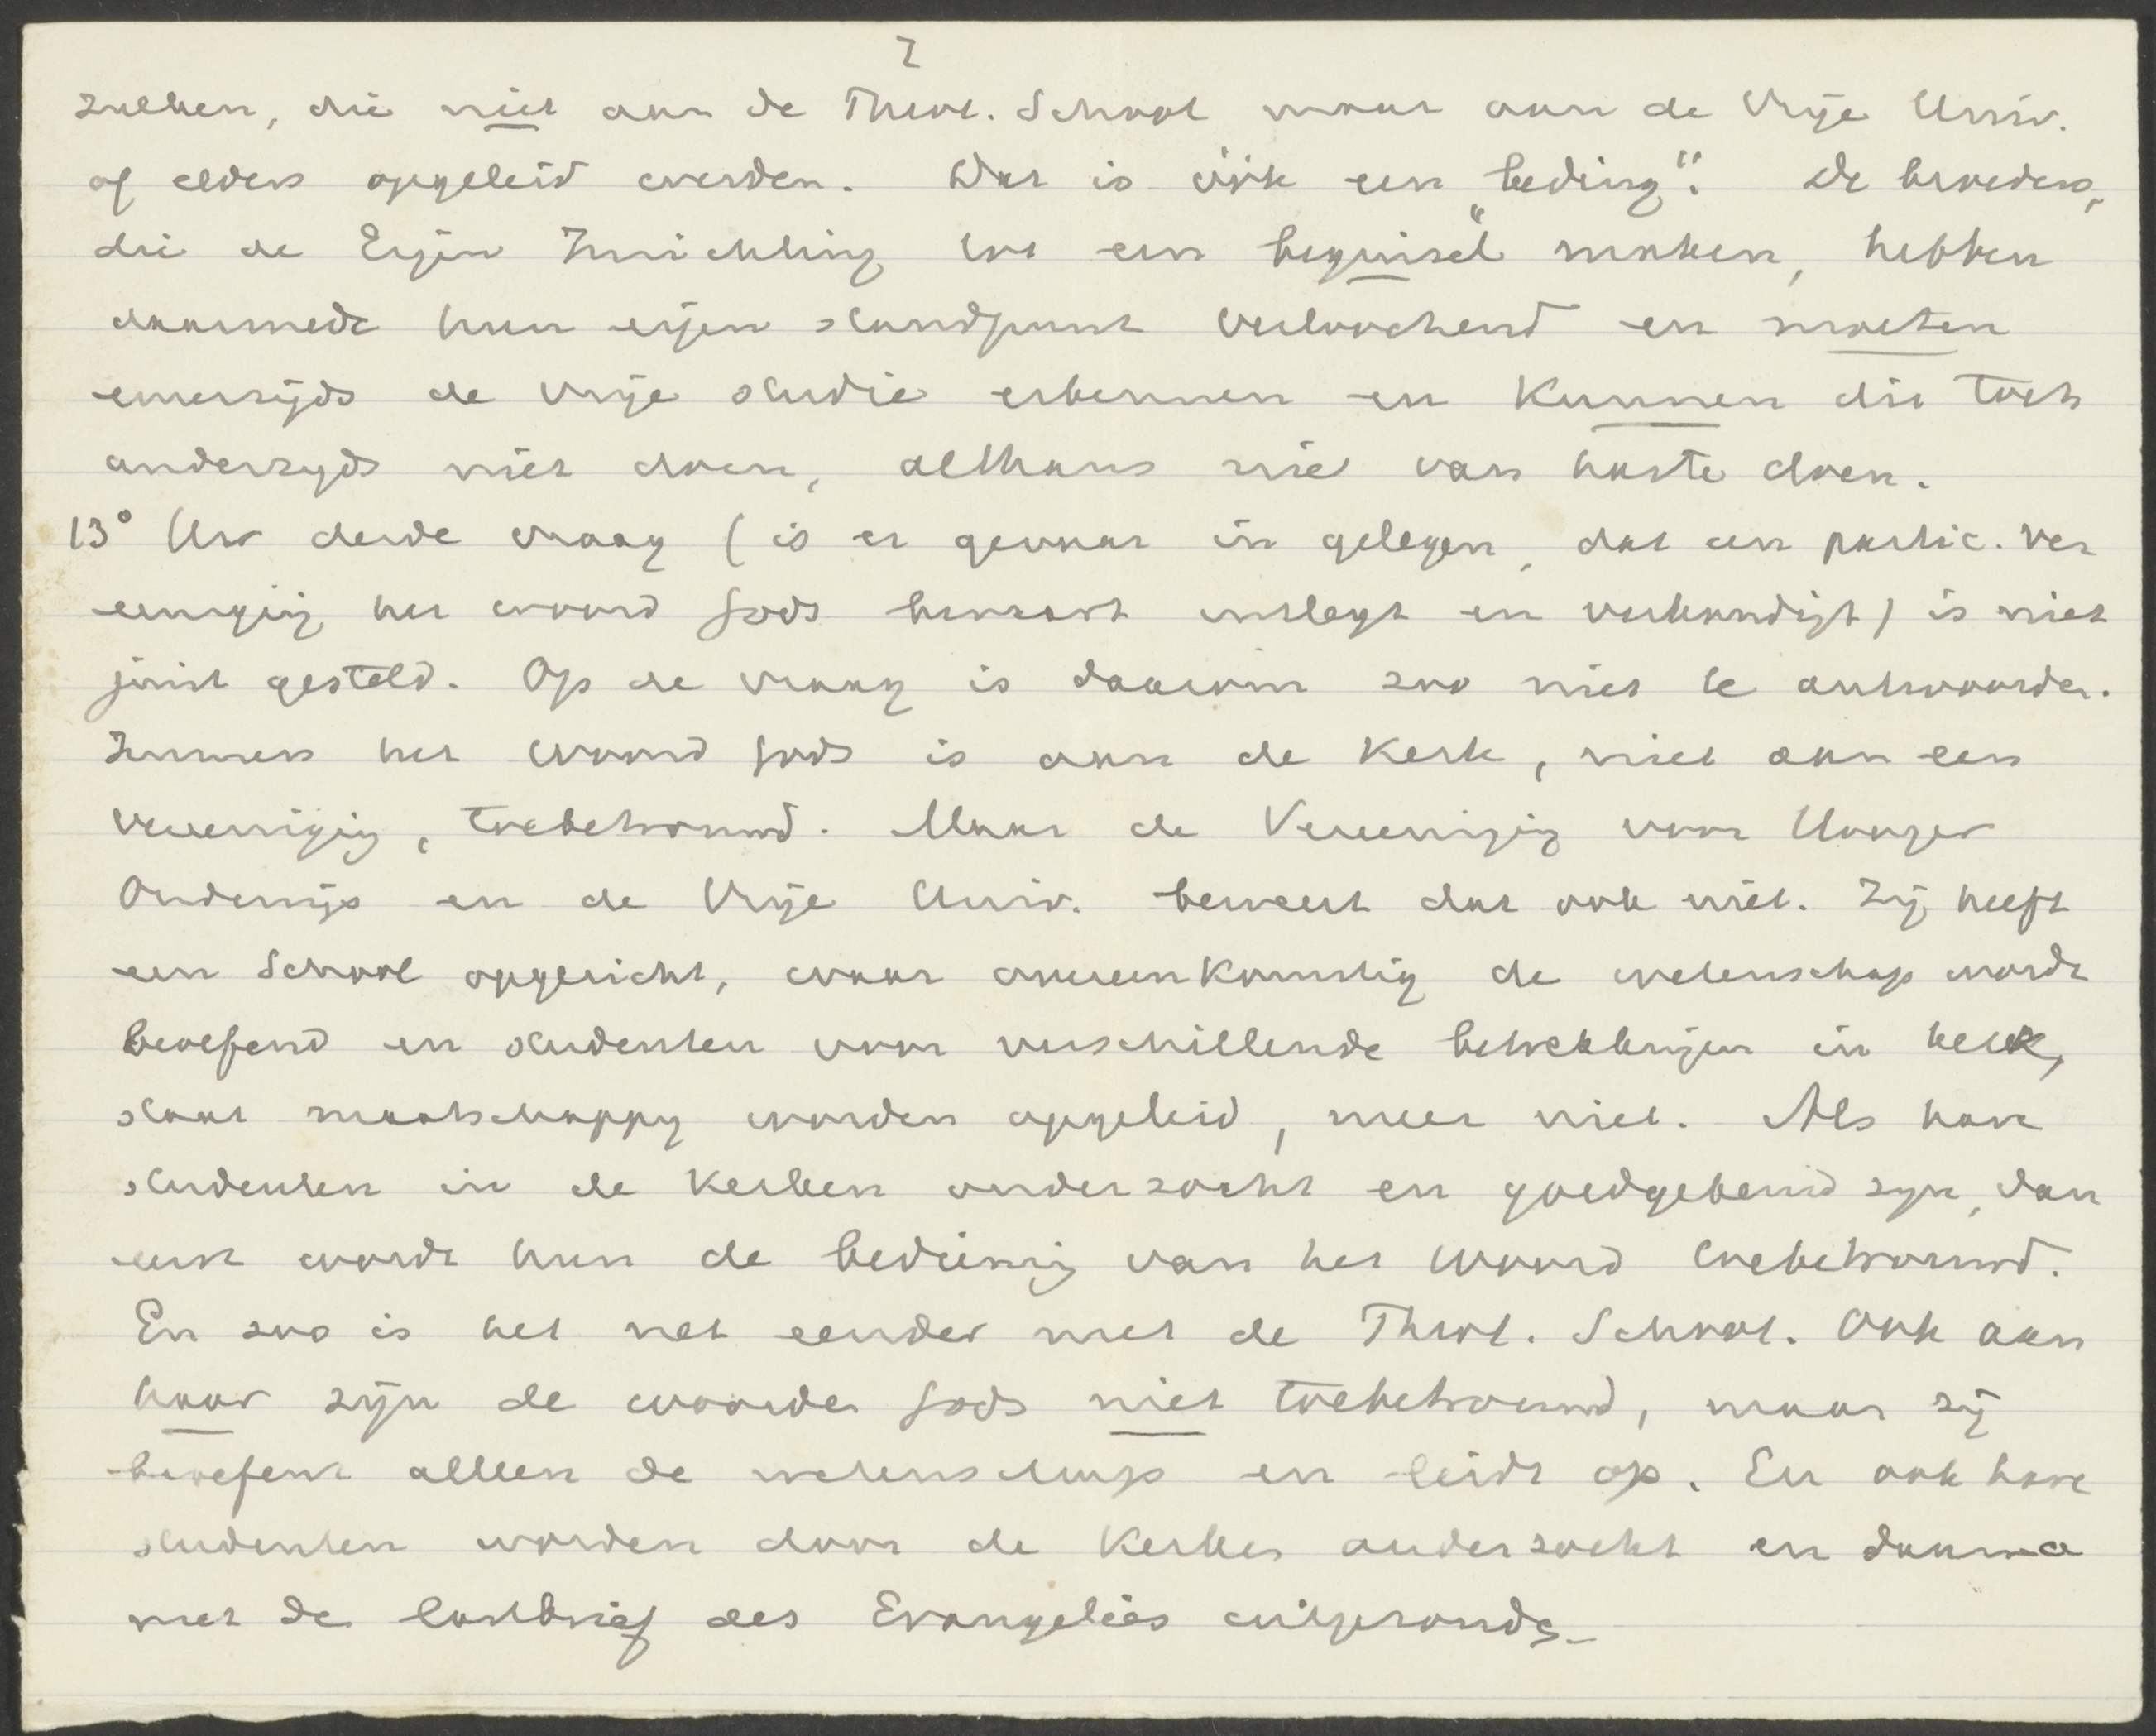 7
zulken, die niet aan de Theol. School maar aan de Vrije Univ.
of elders opgeleid werden. Dat is óók een „beding“. De broeders,
die de Eigen Inrichting tot een „beginsel“ maken, hebben
daarmede hun eigen standpunt verloochend en moeten
eenerzijds de vrije studie erkennen en kunnen dit toch
anderzyds niet doen, althans niet van harte doen.
13° Uw derde vraag (is er gevaar in gelegen, dat een partic. Ver
eeniging het woord Gods bewaart uitlegt en verkondigt) is niet
juist gesteld. Op de vraag is daarom zoo niet te antwoorden.
Immers het Woord Gods is aan de Kerk, niet aan een
vereeniging, toebetrouwd. Maar de Vereeniging voor Hooger
Onderwijs en de Vrije Univ. beweert dat ook niet. Zij heeft
een School opgericht, waar overeenkomstig de wetenschap wordt
beoefend en studenten voor verschillende betrekkingen in kerk,
staat maatschappy worden opgeleid, meer niet. Als hare
studenten in de Kerken onderzocht en goedgekeurd zyn, dan
eerst wordt hun de bediening van het Woord toebetrouwd.
En zoo is het net eender met de Theol. School. Ook aan
haar zijn de woorden Gods niet toebetrouwd, maar zij
beoefent alleen de wetenschap en leidt op. En ook hare
studenten worden door de Kerken onderzocht en daarna
met de lastbrief des Evangelies uitgezonden.